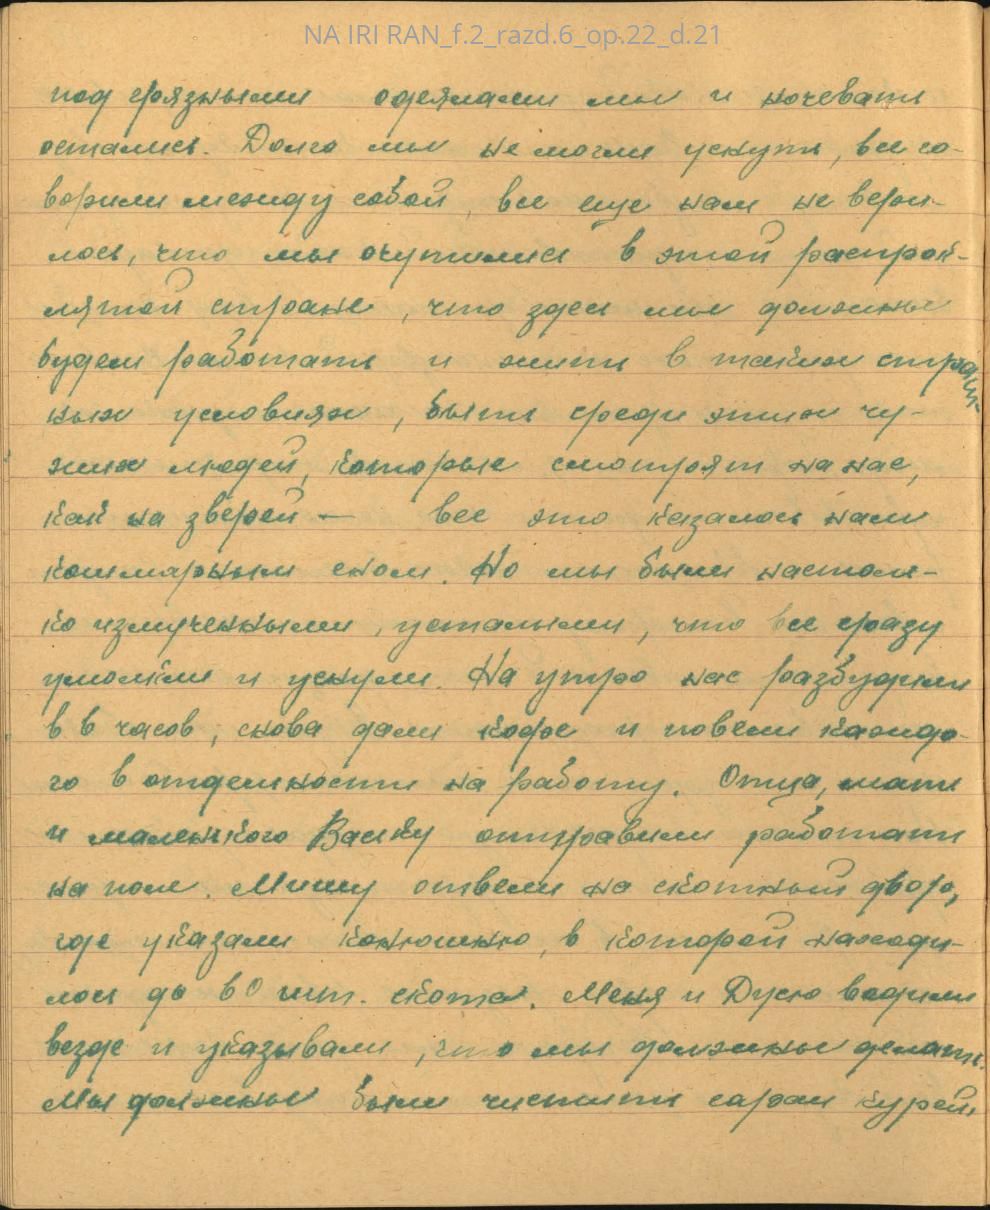 NA IRI RAN_f.2_razd.6_op.22_d.21
под грязными одеялами мы и ночевать
остались. Долго мы не могли уснуть, все го-
ворили между собой, все еще нам не вери-
лось, что мы очутились в этой распрок-
лятой стране, что здесь мы должны
будем работать и жить в таких страш-
ных условиях, быть среди этих чу-
жих людей, которые смотрят на нас,
как на зверей — все это казалось нам
кошмарным сном. Но мы были настоль-
ко измученными, усталыми, что все сразу
умолкли и уснули. На утро нас разбудили
в 6 часов, снова дали кофе и повели каждо-
го в отдельности на работу. Отца, мать
и маленького Ваську отправили работать
на поле. Мишу отвели на скотный двор,
где указали конюшню, в которой находи-
лось до 60 шт. скота. Меня и Дусю водили
везде и указывали, что мы должны делать.
Мы должны были чистить сараи курей,